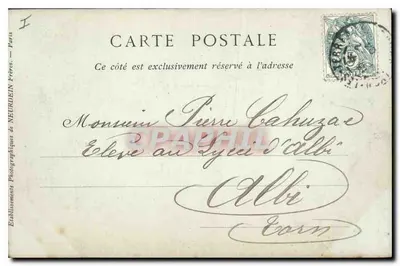 I
CARTE POSTALE
Ce côté est exclusivement réservé à l'adresse
Monsieur Pierre Cahuzac
Eleve au Lyceé d'Albi
Albi
Tarn
Etablissements Photographiques de NEURDEIN Frères. — Paris